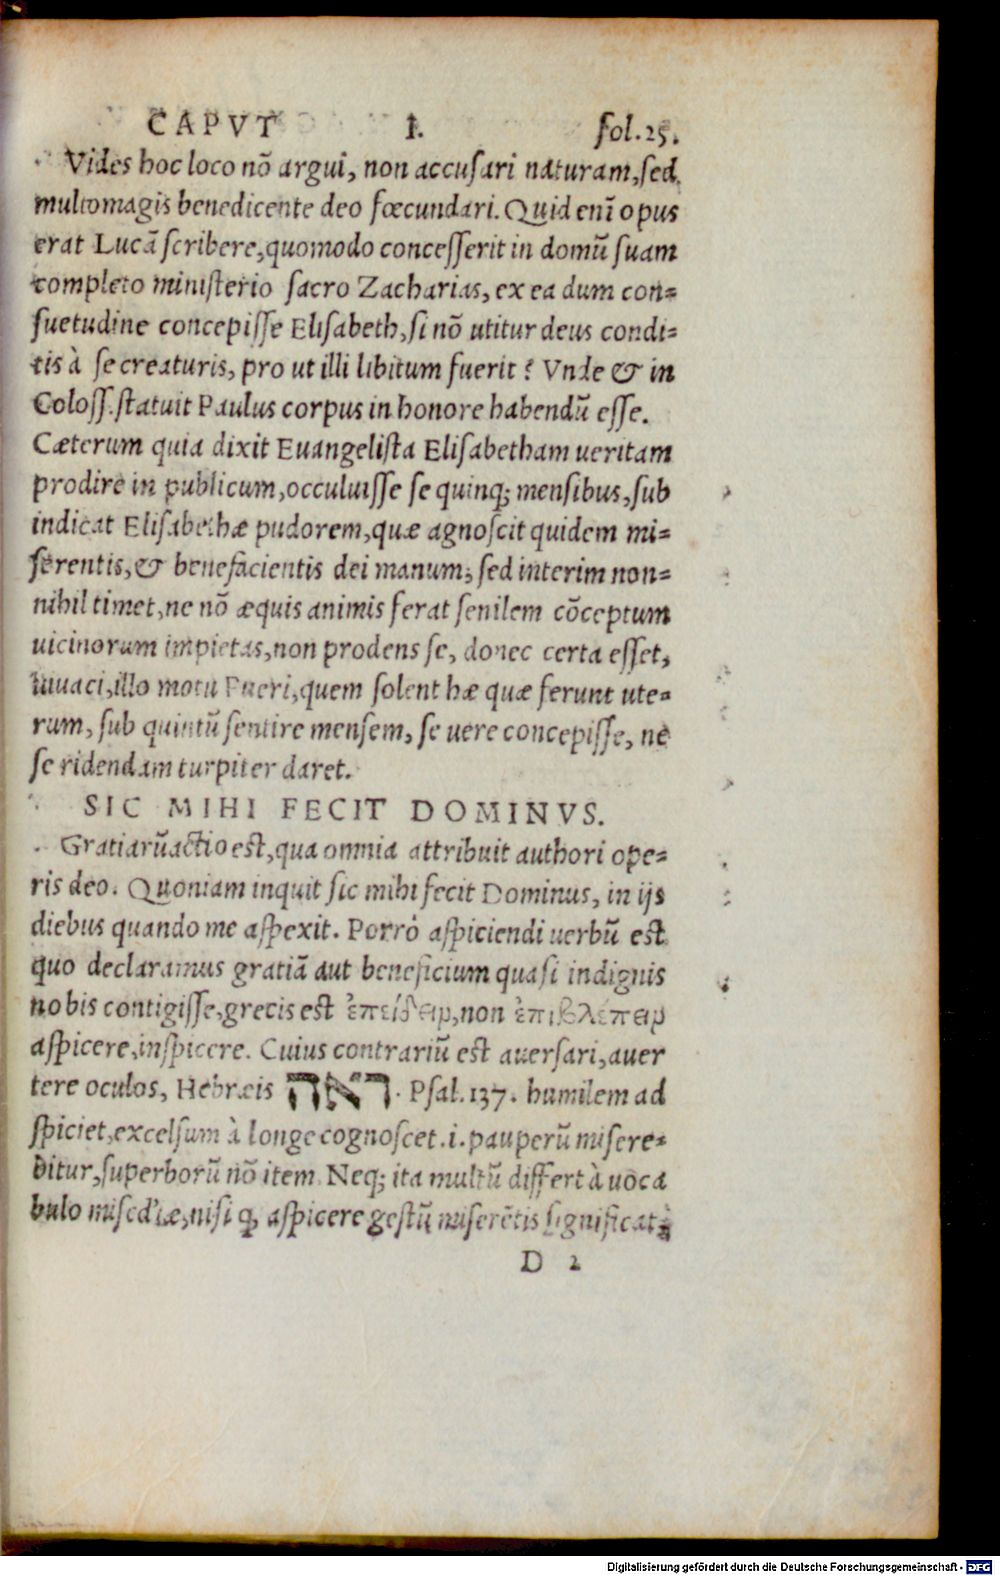 CAPVT I. fol.25.
Vides hoc loco nō argui, non accusari naturam, sed
multomagis benedicente deo fœcundari. Quid enī opus
erat Lucā scribere, quomodo concesserit in domū suam
completo ministerio sacro Zacharias, ex ea dum con=
suetudine concepisse Elisabeth, si nō utitur deus condi=
tis à se creaturis, pro ut illi libitum fuerit? Vnde & in
Coloss. statuit Paulus corpus in honore habendū esse.
Cæterum quia dixit Euangelista Elisabetham ueritam
prodire in publicum, occuluisse se quinq; mensibus, sub
indicat Elisabethæ pudorem, quæ agnoscit quidem mi=
serentis, & benefacientis dei manum; sed interim non=
nihil timet, ne nō æquis animis ferat senilem cōceptum
uicinorum impietas, non prodens se, donec certa esset,
uiuaci, illo motu Pueri, quem solent hæ quæ ferunt ute=
rum, sub quintū sentire mensem, se uere concepisse, ne
se ridendam turpiter daret.
SIC MIHI FECIT DOMINVS.
Gratiarū actio est, qua omnia attribuit authori ope=
ris deo. Quoniam inquit sic mihi fecit Dominus, in ijs
diebus quando me aspexit. Porrò aspiciendi uerbū est
quo declaramus gratiā aut beneficium quasi indignis
nobis contigisse, grecis est ἐπείδειν, non ἐπιβλέπειν
aspicere, inspicere. Cuius contrariū est auersari, auer
tere oculos, Hebræis ראה. Psal. 137. humilem ad
spiciet, excelsum à longe cognoscet .i. pauperū misere=
bitur, superborū nō item. Neq; ita multū differt à uoca
bulo misedʼiæ, nisi q, aspicere gestū miserētis significat;
D 2
Digitalisierung gefördert durch die Deutsche Forschungsgemeinschaft - DFG